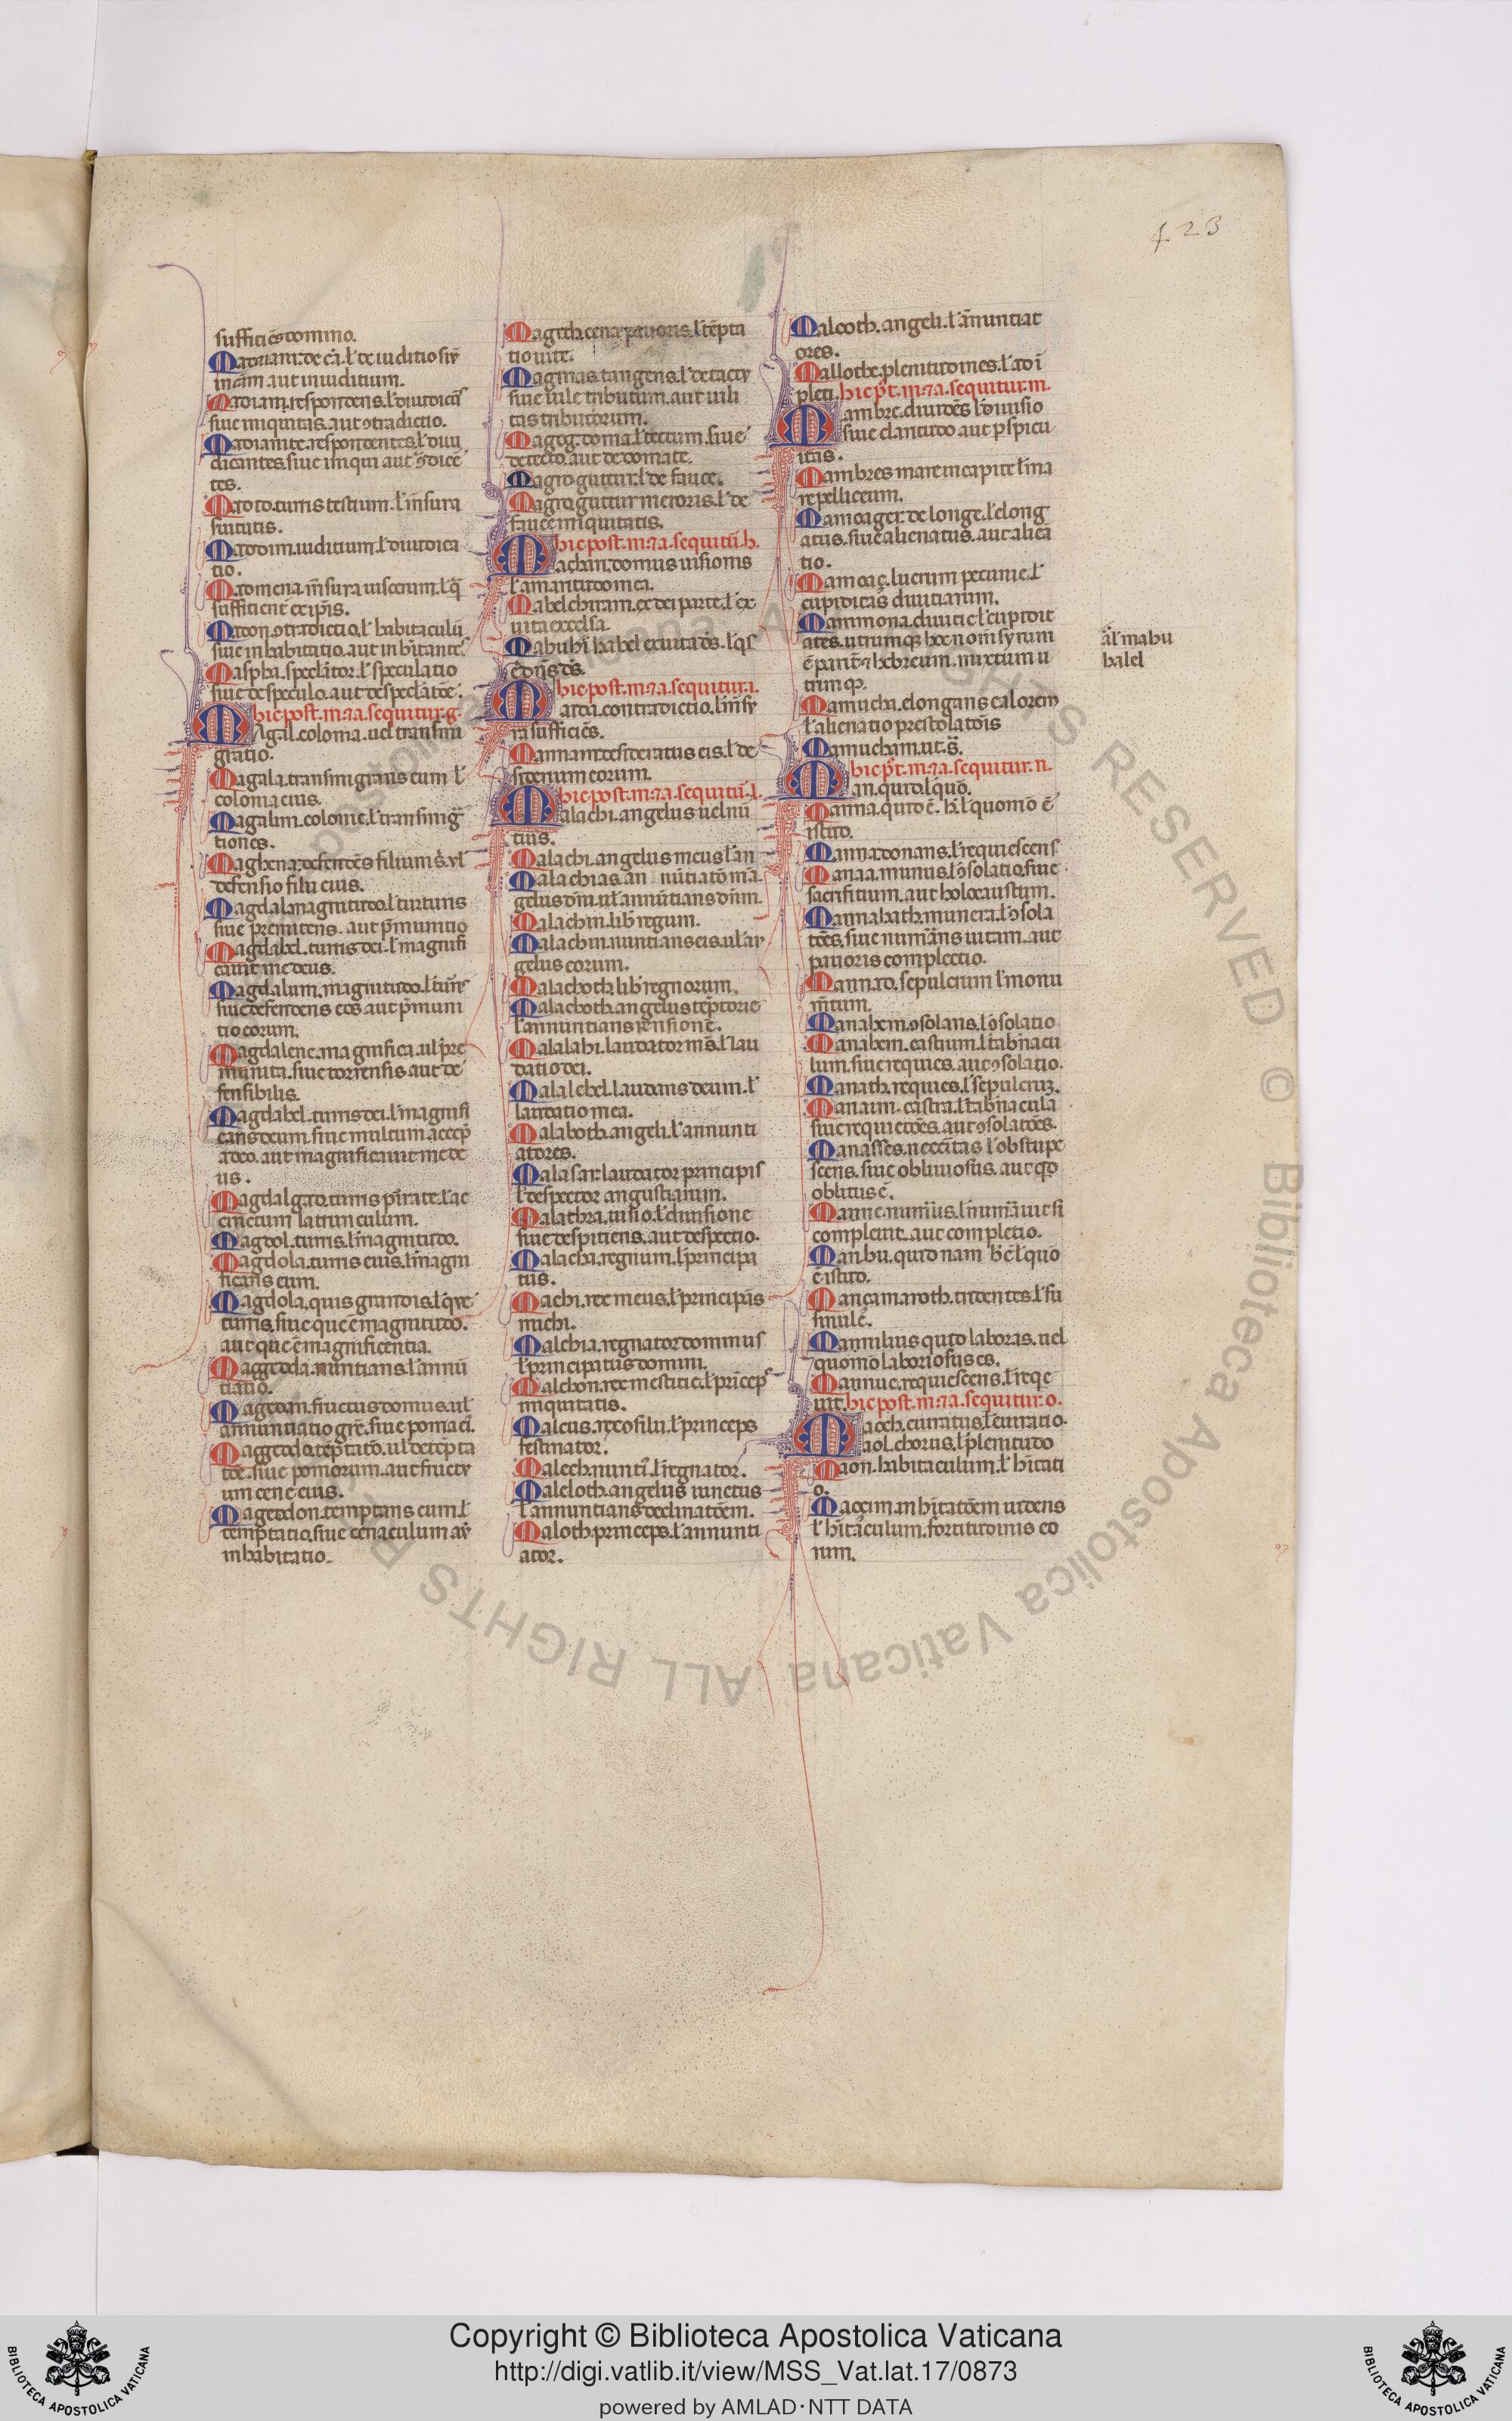 423
sufficiẽs domino.
Madian. de cã. l̃ de iuditio siῡ
in cãm aut in iuditium.
Madiam. respondens. l̃ diiudicãs
siue iniquitas. aut ↄtradictio.
Madianite. respondentes. l̃ diiu
dicantes. siue iniqui aut ↄ̃dicẽ
tes.
Mado co. turris testium. l̃ m̃sura
fruitutis.
Madoim. iuditium. l̃ diiudica
tio.
Madomena. m̃sura uiscerum. l̃
sufficient ex ip̃is.
Madon. ↄtradictio. l̃ habitaculũ
siue inhabitatio. aut inhῐtante.
Maspha. specl̃ator. l̃ speculatio
siue de speculo. aut de specl̃atõe.
hic post. m. ⁊ a. sequitur. g.
MAgal. colonia. uel transmi
gratio.
Magala. transmigrans eum. l̃
colonia eius.
Magalim. colonie. l̃ transmig
tiones.
Maghena. defendẽs filium. s̃. ul̃
defensio filii eius.
Magdal. magnitudo. l̃ turturis
siue premitens. aut p̃munitio
Magdabel. turris dei. l̃ magnifi
cauit me deus.
Magdalum. magnitudo. l̃ turris
siue defendens eos. aut p̃muni
tio eorum.
Magdalene. magnifica. ul̃ pre
munita. siue torrensis. aut de
fensibilis.
Magdabel. turris dei. l̃ magnifi
cans deum. siue multum accep
a deo. aut magnificauit me de
us.
Magdalgad. turris pirate. l̃ ac
cinctum latrunculum.
Magdol. turris. l̃ magnitudo.
Magdola. turris eius. l̃ magni
ficans eum.
Magdola. quis grandis. l̃ que
turris. siue que ẽ magnitudo.
aut que ẽ magnificentia.
Maggeda. nuntians. l̃ annũ
tiatio.
Magedan. fructus domus. ul̃
annuntiatio grẽ. siue poma ei.
Maggedo. tẽptatõ. ul̃ de tẽpta
tõe. siue pomorum. aut fructu
um cene eius.
Magedon. temptans eum. l̃
temptatio. siue cenaculum aῡ
inhabitatio.
Mageth. cena pauoris. l̃ tẽpta
tio uite.
Magmas. tangens. l̃ de tactu
siue uile tributum. aut uili
tas tributorum.
Magog. doma. l̃ tectum. siue
de tecto. aut de domate.
Magro. guttur. l̃ de fauce.
Magro. guttur meroris. l̃ de
fauce iniquitatis.
hic post. m. ⁊ a. sequitũ. h.
Mahan. domus uisionis
l̃ amaritudo mea.
Mahelchiram. ex dei parte. l̃ ex
uita excelsa.
ẽ dñs ds̃.
hic post. m. ⁊ a. sequitur. i.
Maida. contradictio. l̃ m̃su
ra sufficiẽs.
Mainam. desideratus eis. l̃ de
siderium eorum.
hic post. m. ⁊ a. sequitũ. l.
Malachi. angelus uel nũ
tius.
Malachi. angelus meus. l̃ an
Malachias. an nũtiatõ mã.
gelus dñi. ul̃ annũtians dñm.
Malachim. lib̃ regum.
Malachim. nuntians eis. ul̃ aῡ
gelus eorum.
Malachoth. lib̃ regnorum.
Malachoth. angelus tẽp̃torie
l̃ annuntians rensionẽ.
Malalahi. laudator ms̃. l̃ lau
datio dei.
Malalehel. laudans deum. l̃
laudatio mea.
Malaboth. angeli. l̃ annunti
atores.
Malasar. laudator principis
l̃ despector angustiarum.
Malathra. uisio. l̃ diuisione
siue despitiens. aut despectio.
Malacha. regnum. l̃ principa
tus.
Machi. rex meus. l̃ principãs
michi.
Malchia. regnator dominus
l̃ principatus domini.
Malchon. rex mestitie. l̃ pricep
iniquitatis.
Malcus. rex filii. l̃ princeps
festinator.
Malech. nunti. l̃ regnator.
Maleloth. angelus iunctus
l̃ annuntians declinatõem.
Maloth. princeps. l̃ annunti
ator.
Malooth. angeli. l̃ ãnuntiat
ores.
Mallothe. plenitudines. l̃ adi
pleti. hic p̃t. m. ⁊ a. sequitur. m.
Mambre. diuidẽs. l̃ diuisio
siue claritudo aut pspicu
itas.
Mambres. mare in capite. l̃ ma
re pelliceum.
Mamoager. de longe. l̃ elong
atus. siue alienatus. aut alieã
tio.
Mamoaç. lucrum pecunie. l̃
cupiditas diuitiarum.
Mammona. diuitie. l̃ cupidit
ates. utrumqꝫ hoc nom̃ syrum
ẽ parit̃ ⁊ hebreum. mixtum u
trumqꝫ.
Mamucha. elongans calorem
l̃ alienatio prestolatõis
Mamucham. ut. s̃.
hic p̃t. m. ⁊ a. sequitur. n.
Man. quid. l̃ quõ.
Manna. quid ẽ. h̃. l̃ quomõ ẽ
istud.
Manna. donans. l̃ requiescens
Manaa. munus. l̃ ↄsolatio. siue
sacrifitium. aut holocaustum.
Mannahath. munera. l̃ ↄsola
tões. siue numãns uitam. aut
pauoris complectio.
Mannad. sepulcrum. l̃ monu
m̃tum.
Manahem. ↄsolans. l̃ ↄsolatio
Manahem. castrum. l̃ tab̃nacu
lum. siue requies. aut ↄsolatio.
Manath. requies. l̃ sepulcruꝫ.
Manaim. castra. l̃ tab̃nacula
siue requietões. aut ↄsolatões.
Manasses. necessitas l̃ obstupe
scens. siue obliuiosus. aut qd
oblitus ẽ.
Manne. num̃us. l̃ num̃auit si
compleuit. aut completio.
Manhu. quid nam h̃ ẽ l̃ quo
ẽ istud.
Mançamaroth. tridentes. l̃ fu
sinulẽ.
Mannibus quid laboras. uel
quomo laboriosus es.
Mannue. requiescens. l̃ reqe
uit. hic post. m. ⁊ a. sequitur. o.
Maoch. curatus. l̃ curatio.
Maol. chorus. l̃ plenitudo
Maon. habitaculum. l̃ hĩtati
o.
Maoçim. inhĩtatõem uidens
l̃ hĩtaculum. fortitudinis eo
rum.
ãl mahu
halel
Copyright © Biblioteca Apostolica Vaticana
http://digi.vatlib.it/view/MSS_Vat.lat.17/0873
powered by AMLAD·NTT DATA
BIBLIOTECA APOSTOLICA VATICANA
BIBLIOTECA APOSTOLICA VATICANA